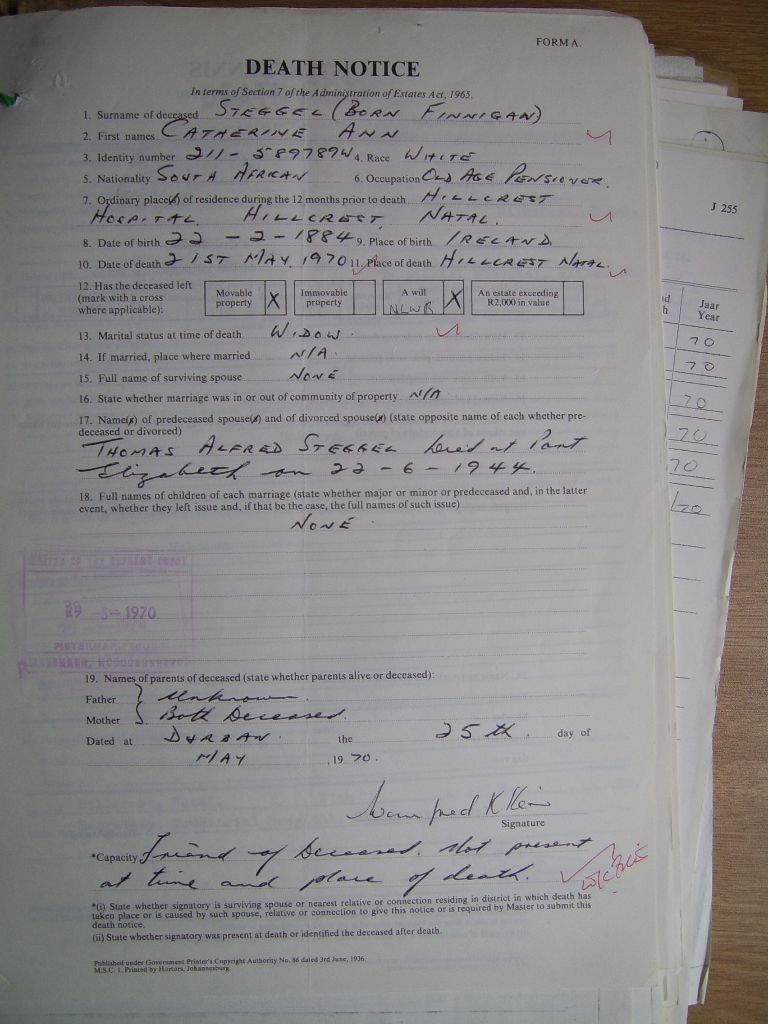 FORM A.
DEATH NOTICE
In terms of Section 7 of the Administration of Estates Act, 1965.
1. Surname of deceased STEGGEL (BORN FINNIGAN)
2. First names CATHERINE ANN
3. Identity number 211-589789W 4. Race WHITE
5. Nationality SOUTH AFRICAN 6. Occupation OLD AGE PENSIONER.
7. Ordinary place(s) of residence during the 12 months prior to death HILLCREST
HOSPITAL. HILLCREST, NATAL.
8. Date of birth 22-2-1884 9. Place of birth IRELAND
10. Date of death 21ST MAY, 1970 11. Place of death HILLCREST NATAL.
12. Has the deceased left (mark with a cross where applicable): Movable property X Immovable property A will NLWR X An estate exceeding R2,000 in value
13. Marital status at time of death WIDOW.
14. If married, place where married N/A.
15. Full name of surviving spouse NONE
16. State whether marriage was in or out of community of property N/A
17. Name(s) of predeceased spouse(s) and of divorced spouse(s) (state opposite name of each whether pre-
deceased or divorced)
THOMAS ALFRED STEGGEL Died at Port
Elizabeth on 22-6-1944.
18. Full names of children of each marriage (state whether major or minor or predeceased and, in the latter
event, whether they left issue and, if that be the case, the full names of such issue)
NONE.
1970
19. Names of parents of deceased (state whether parents alive or deceased):
Father } Unknown
Mother } Both Deceased.
Dated at DURBAN. the 25th. day of
MAY , 19 70.
Signature
*Capacity Friend of Deceased. Not present
at time and place of death.
*(i) State whether signatory is surviving spouse or nearest relative or connection residing in district in which death has
taken place or is caused by such spouse, relative or connection to give this notice or is required by Master to submit this
death notice.
(ii) State whether signatory was present at death or identified the deceased after death.
Published under Government Printer's Copyright Authority No. 86 dated 3rd June, 1936.
M.S.C. 1. Printed by Hortors, Johannesburg.
J 255
Jaar
Year
70
70
70
70
70
70